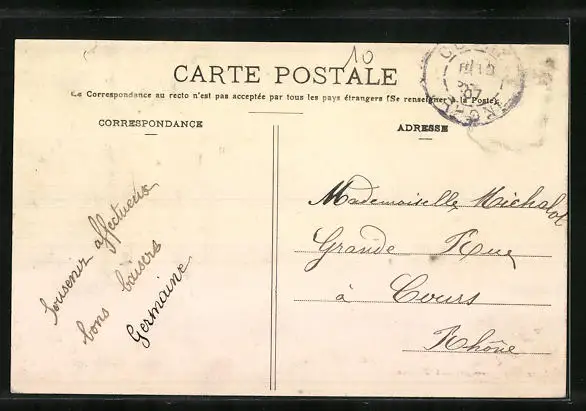 10
CARTE POSTALE
La Correspondance au recto n'est pas acceptée par tous les pays étrangers (Se renseigner à la Poste).
CORRESPONDANCE
ADRESSE
Souvenir affectueux
bons baisers
Germaine
Mademoiselle Michalot
Grande Rue
à Cours
Rhône
07